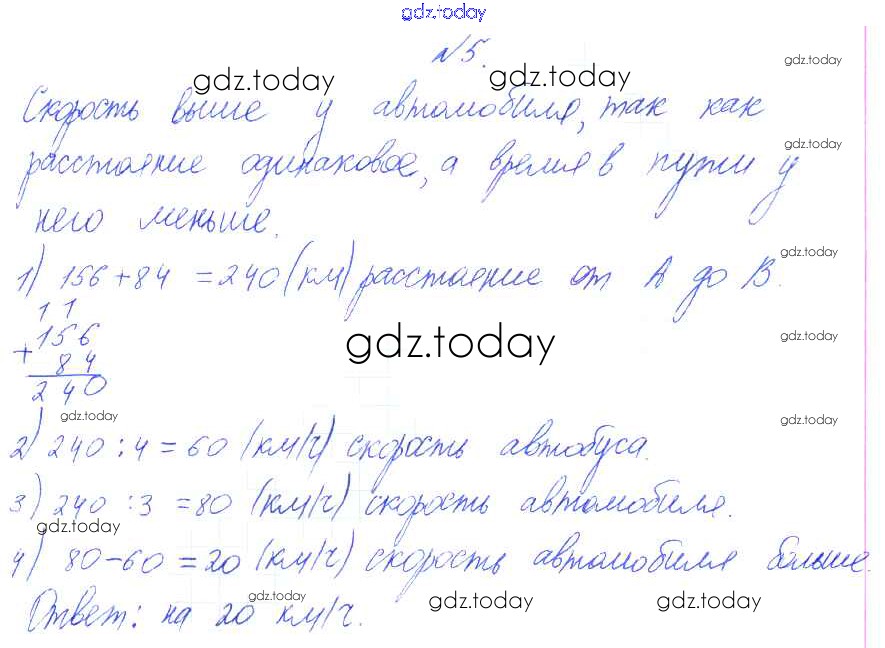 gdz.today
№5.
gdz.today gdz.today gdz.today
Скорость выше у автомобиля, так как
gdz.today
расстояние одинаковое, а время в пути у
него меньше.
gdz.today
1) 156+84 = 240 (км) расстояние от А до В.
11
+ 156
84
240
gdz.today gdz.today
gdz.today gdz.today
2) 240 : 4 = 60 (км/ч) скорость автобуса.
3) 240 : 3 = 80 (км/ч) скорость автомобиля.
gdz.today
4) 80-60 = 20 (км/ч) скорость автомобиля больше.
gdz.today gdz.today gdz.today
Ответ: на 20 км/ч.